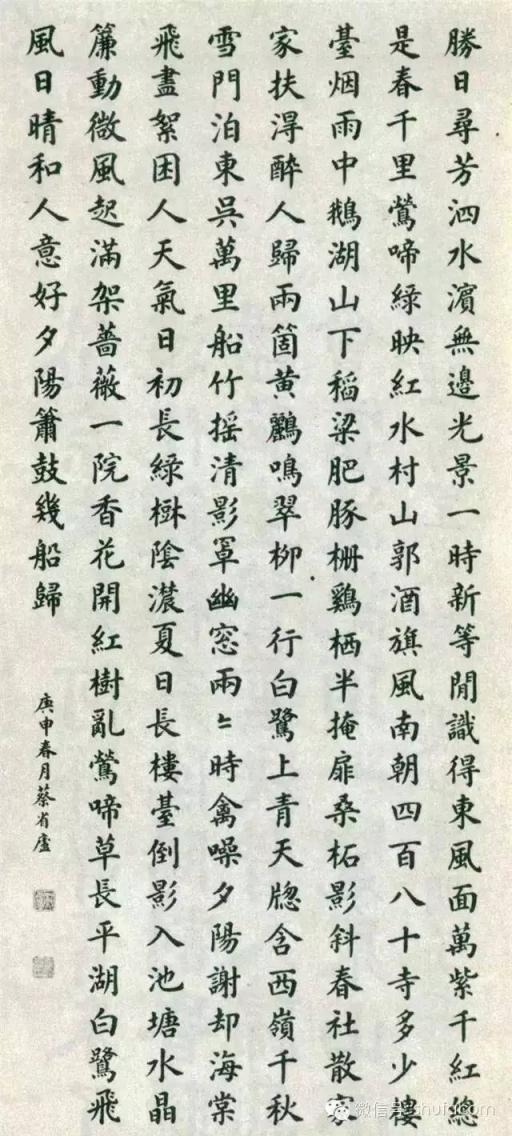 勝日尋芳泗水濱無邊光景一時新等閒識得東風面萬紫千紅總
是春千里鶯啼綠映紅水村山郭酒旗風南朝四百八十寺多少樓
臺烟雨中鵝湖山下稻粱肥豚柵鷄栖半掩扉桑柘影斜春社散家
家扶淂醉人歸兩箇黃鸝鳴翠柳一行白鷺上青天牕含西嶺千秋
雪門泊東吳萬里船竹搖清影罩幽窓兩〻時禽噪夕陽謝却海棠
飛盡絮困人天氣日初長綠樹陰濃夏日長樓臺倒影入池塘水晶
簾動微風起滿架薔薇一院香花開紅樹亂鶯啼草長平湖白鷺飛
風日晴和人意好夕陽簫鼓幾船歸
庚申春月蔡省廬
微信号